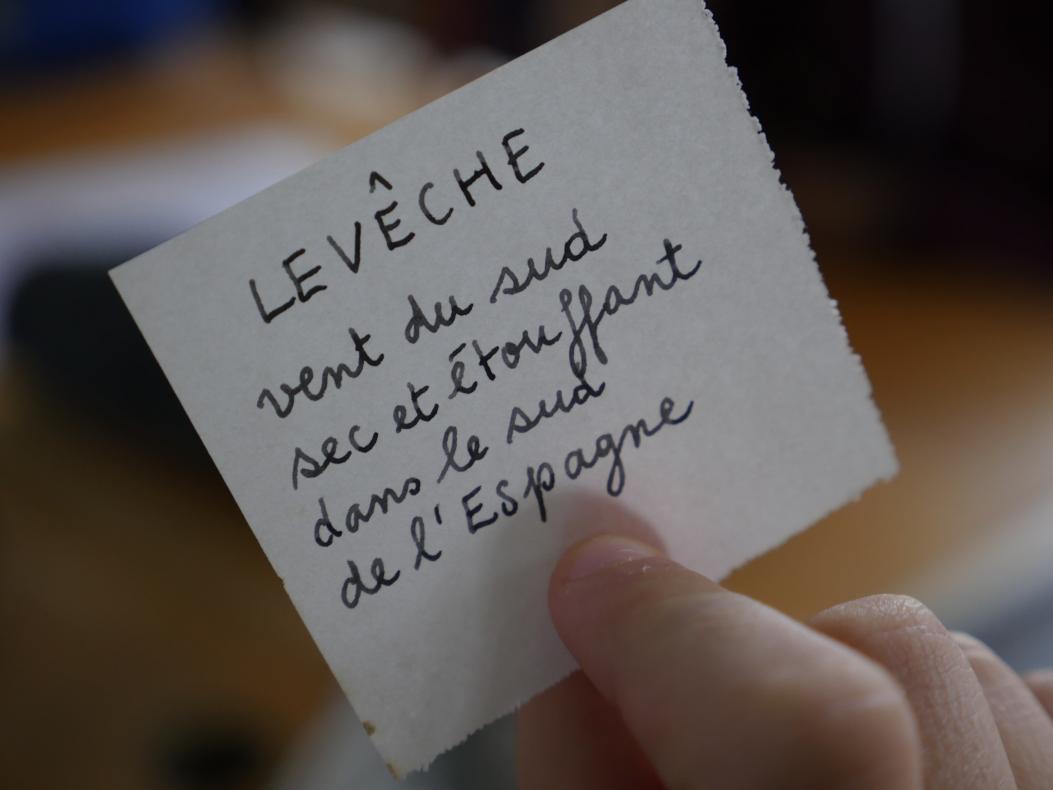 LEVÊCHE
vent du sud
sec et étouffant
dans le sud
de l'Espagne